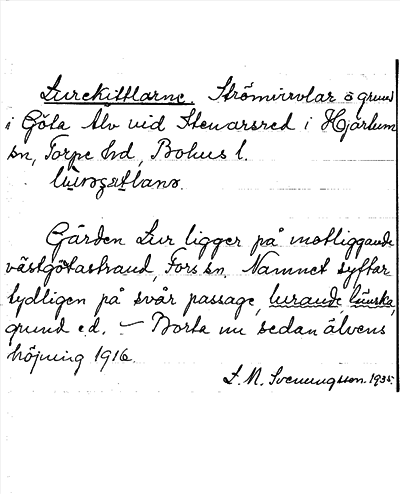 Lurekittlarne. Strömvirvlar o grund
i Göta Älv vid Stenarsred i Hjärtum
sn, Torpe hd, Bohus l.
Gården Lur ligger på motliggande
västgötastrand, Fors sn. Namnet syftar
tydligen på svår passage, lurande lömska,
grund e d. – Borta nu sedan älvens
höjning 1916.
S. N. Svenungsson. 1935.